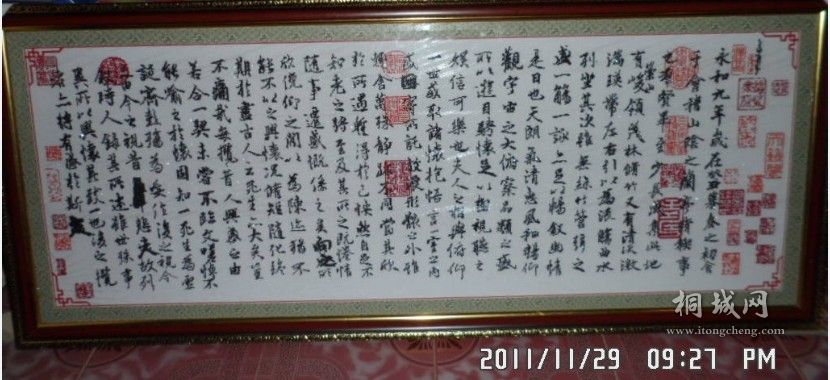 永和九年歲在癸丑暮春之初會
于會稽山陰之蘭亭脩禊事
也群賢畢至少長咸集此地
有崇山峻領茂林脩竹又有清流激
湍暎帶左右引以為流觴曲水
列坐其次雖無絲竹管弦之
盛一觴一詠亦足以暢敘幽情
是日也天朗氣清惠風和暢仰
觀宇宙之大俯察品類之盛
所以遊目騁懷足以極視聽之
娛信可樂也夫人之相與俯仰
一世或取諸懷抱悟言一室之內
或因寄所託放浪形骸之外雖
趣舍萬殊靜躁不同當其欣
於所遇暫得於己怏然自足不
知老之將至及其所之既惓情
隨事遷感慨係之矣向之所
欣俛仰之閒以為陳迹猶不
能不以之興懷況脩短隨化終
期於盡古人云死生亦大矣豈
不痛哉每攬昔人興感之由
若合一契未嘗不臨文嗟悼不
能喻之於懷固知一死生為虛
誕齊彭殤為妄作後之視今
亦由今之視昔悲夫故列
敘時人錄其所述雖世殊事
異所以興懷其致一也後之攬
者亦將有感於斯文
桐城网
www.itongcheng.com
2011/11/29 09:27 PM